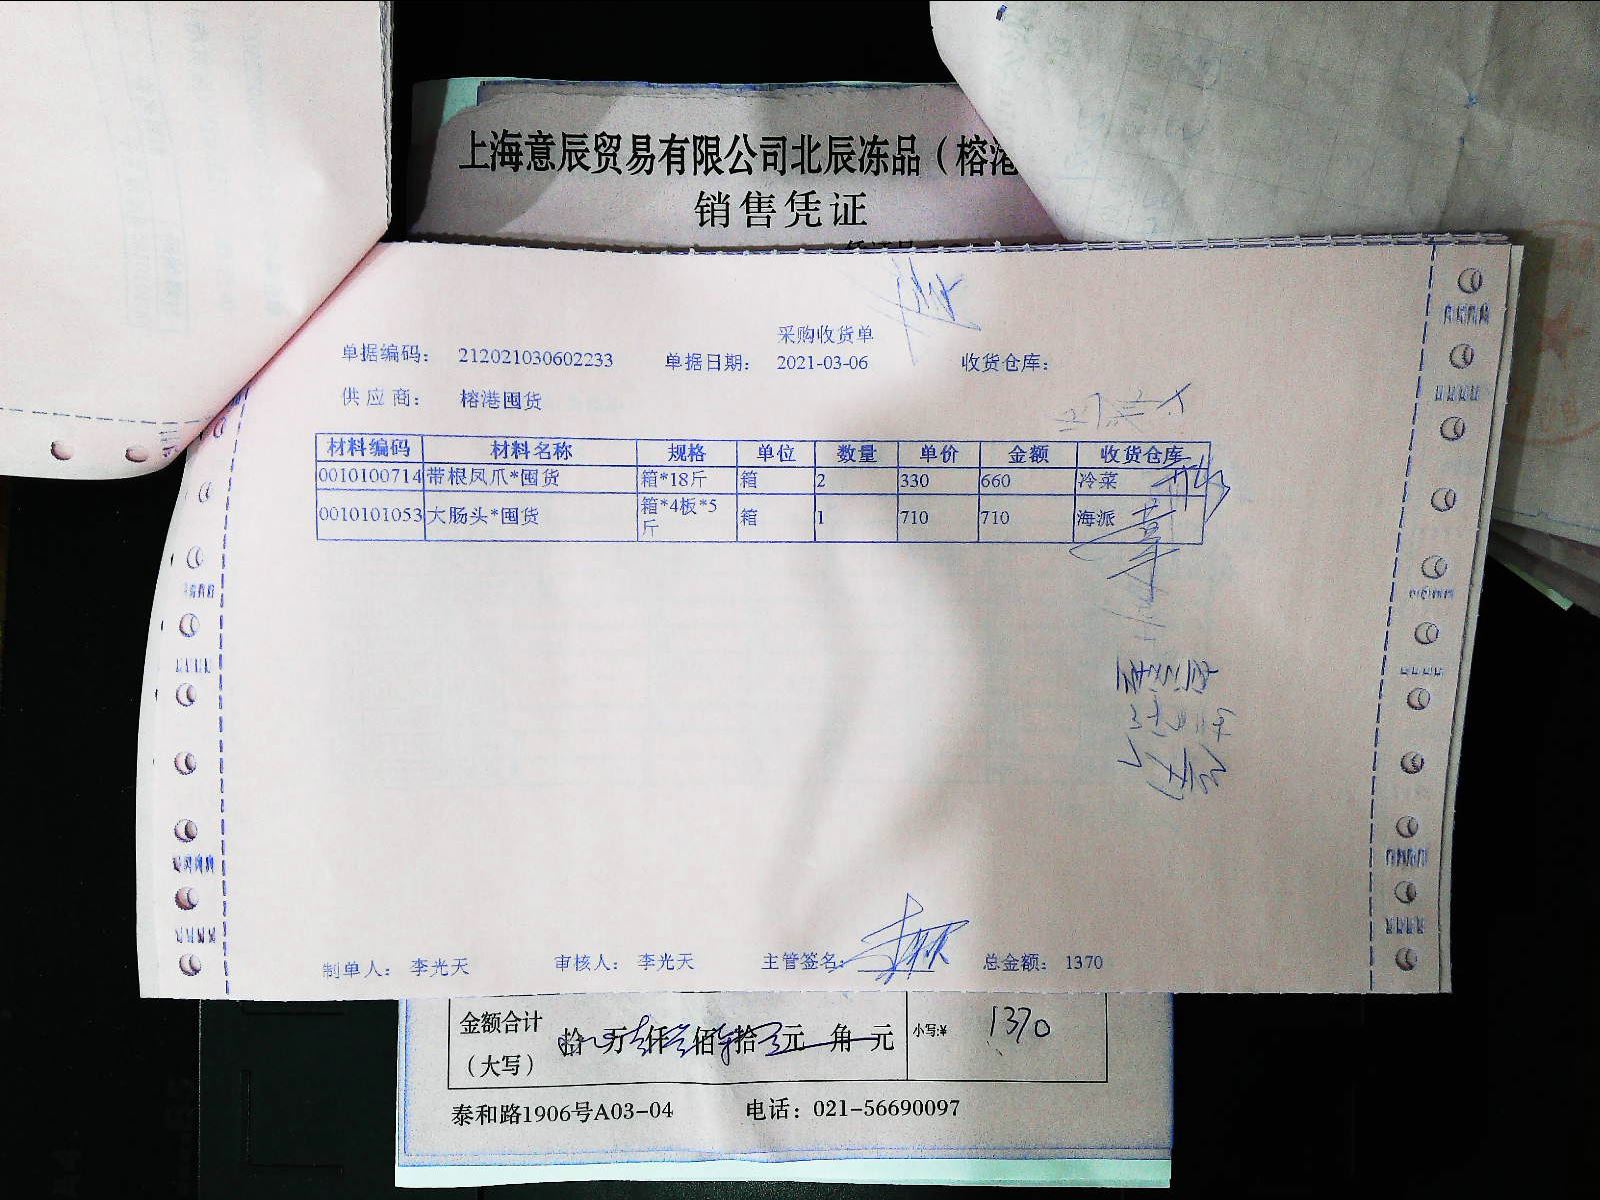 上海意辰贸易有限公司北辰冻品（榕港
销售凭证
采购收货单
单据编码： 212021030602233 单据日期： 2021-03-06 收货仓库：
供应商： 榕港囤货
材料编码 材料名称 规格 单位 数量 单价 金额 收货仓库
0010100714 带根凤爪*囤货 箱*18斤 箱 2 330 660 冷菜
0010101053 大肠头*囤货 箱*4板*5斤 箱 1 710 710 海派
制单人： 李光天 审核人： 李光天 主管签名： 总金额： 1370
金额合计（大写） 拾 万 仟 佰 拾 元 角 元 小写:¥ 1370
泰和路1906号A03-04 电话：021-56690097